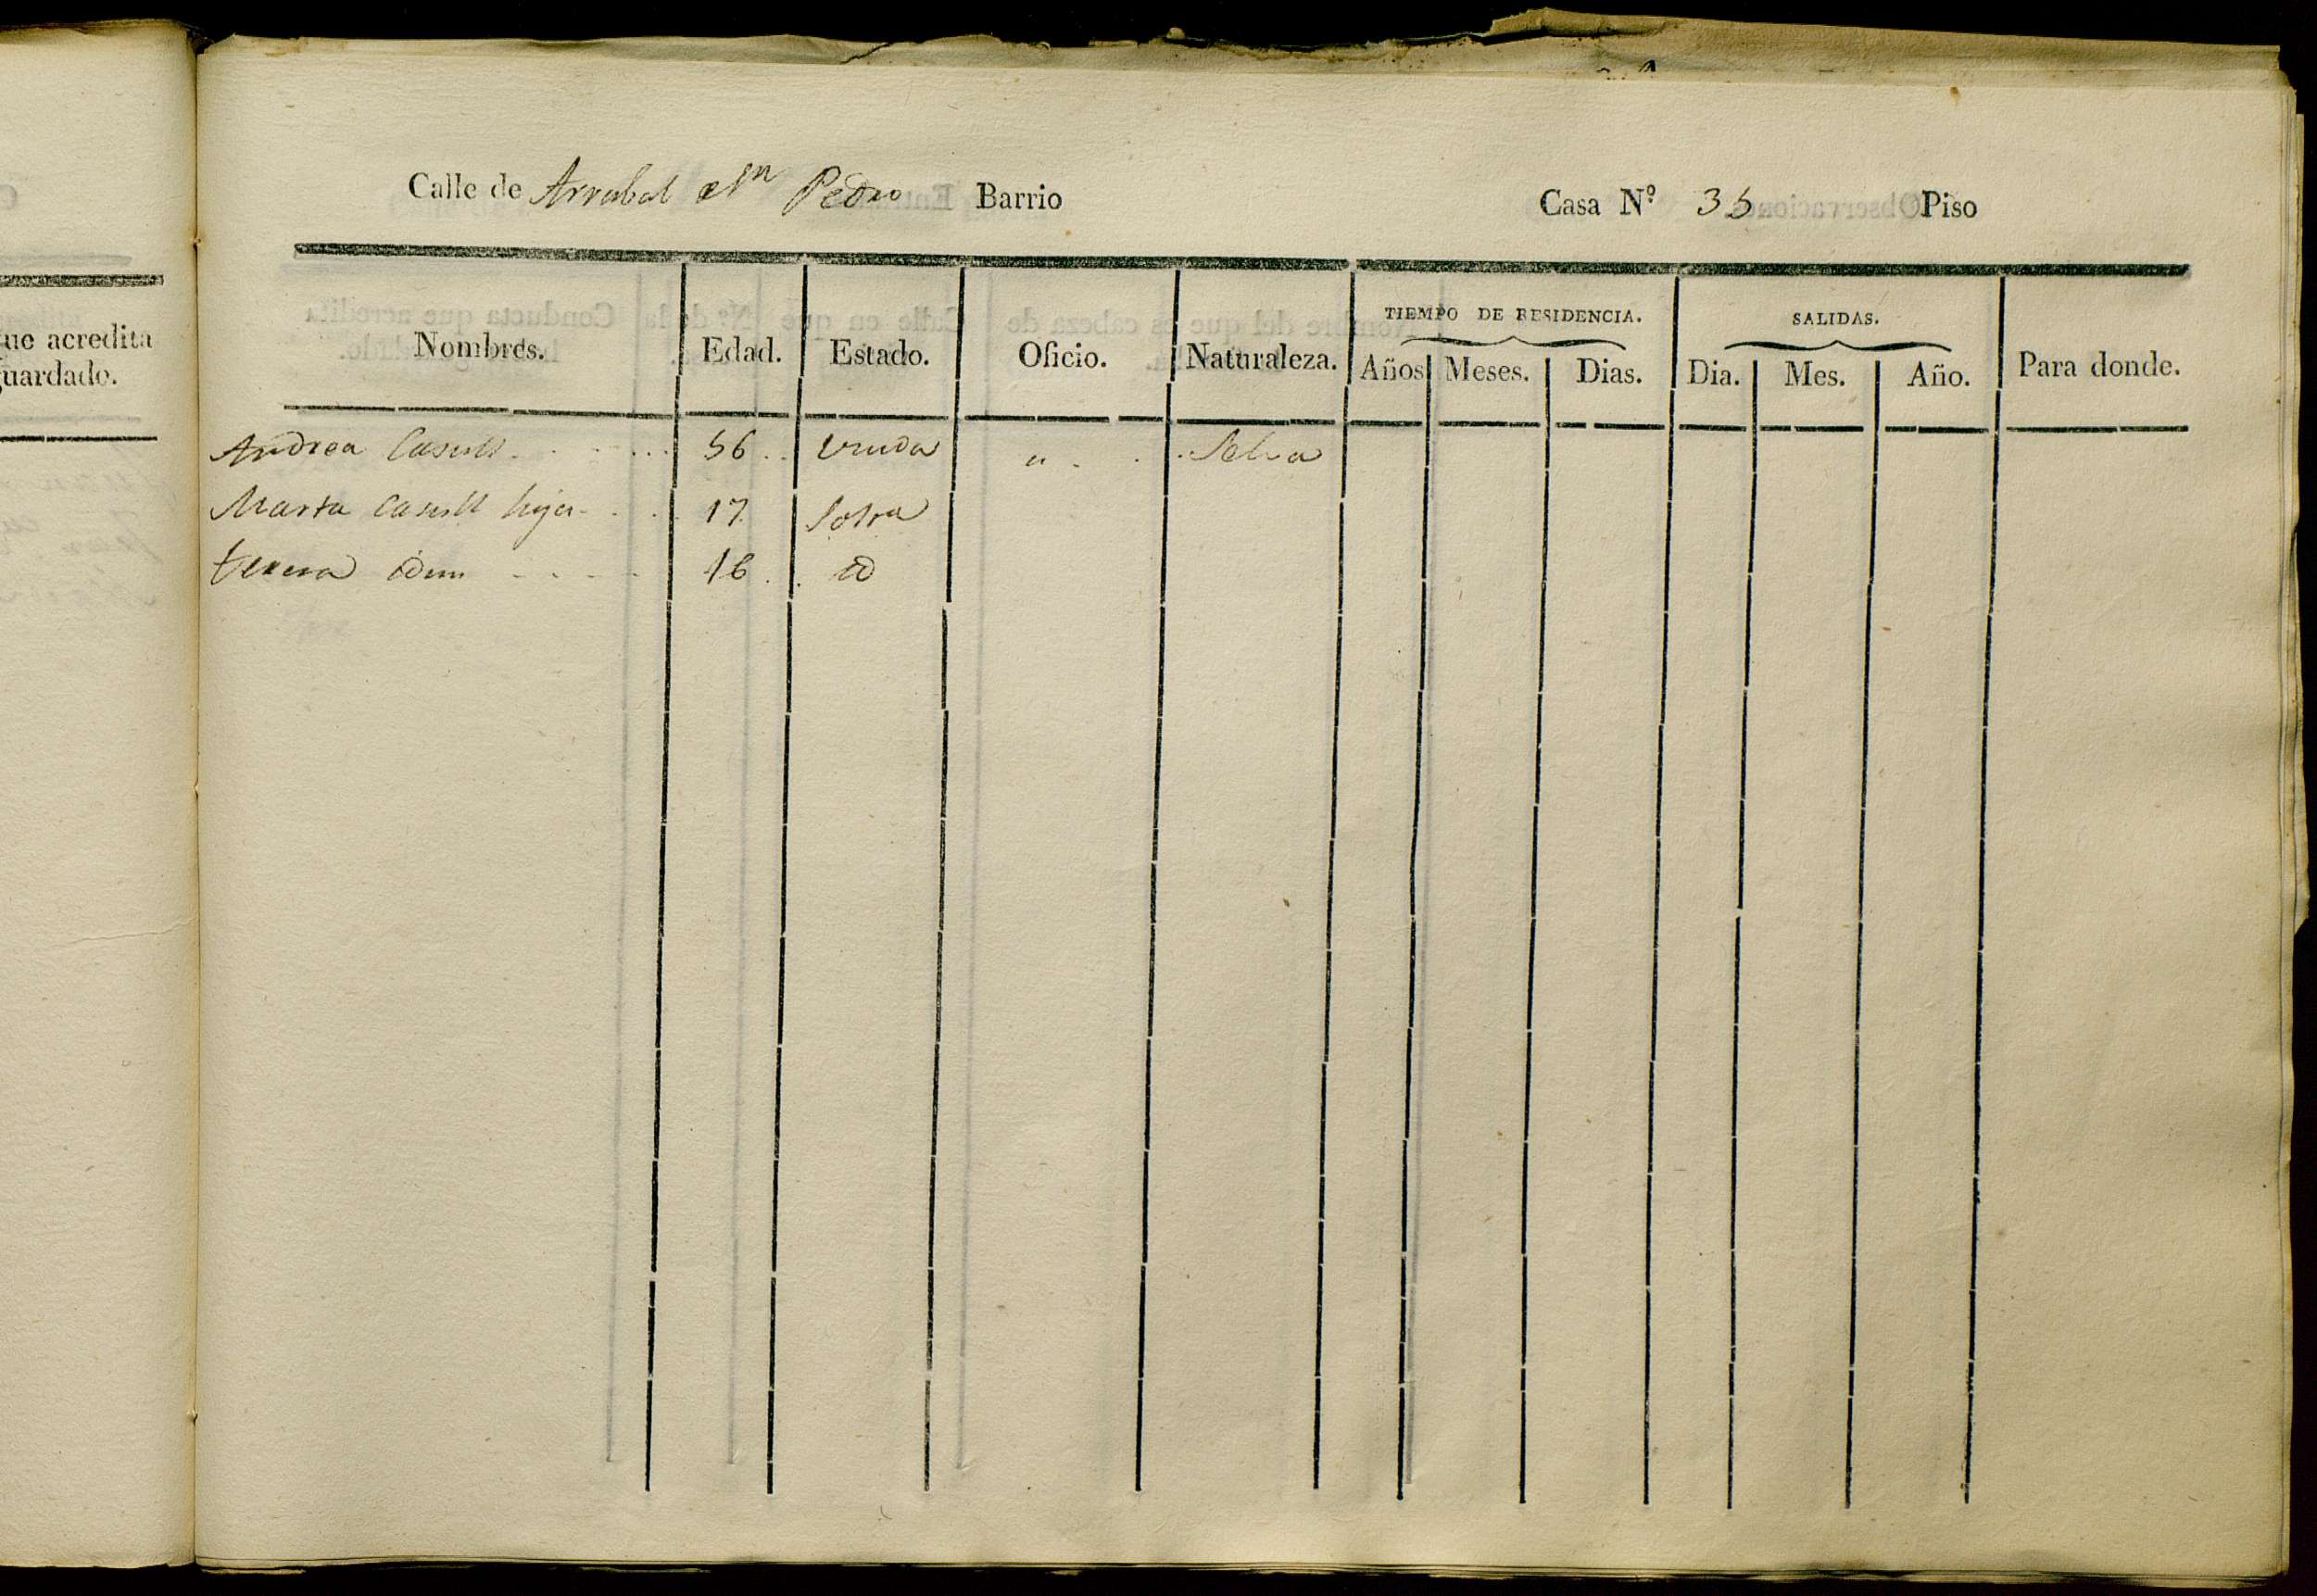 Calle de Arrabal Sn Pedro Barrio Casa N.º 35 Piso
ue acredita
guardado.
TIEMPO DE RESIDENCIA. SALIDAS.
Nombres. Edad. Estado. Oficio. Naturaleza. Años Meses. Dias. Dia. Mes. Año. Para donde.
Andrea Casull 56 viuda " Selva
Marta Casull hija 17 Soltra
teresa idem 16 id